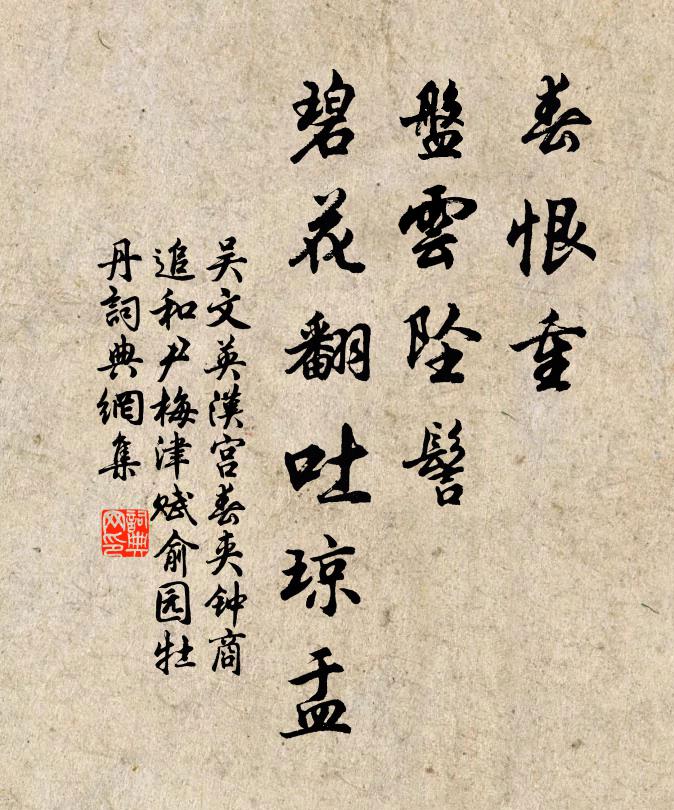 春恨重
盤雲坠髻
碧花翻吐琼盂
吴文英漢宫春夹钟商
追和尹梅津赋俞园牡
丹詞典網集
詞典
网印